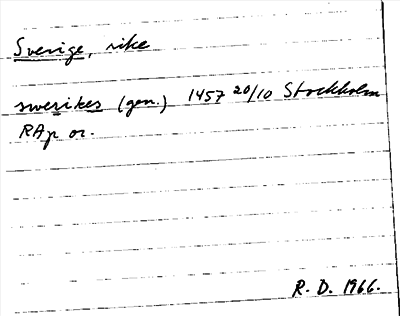 Sverige, rike
swerikes (gen.) 1457 20/10 Stockholm
RAp or.
R. D. 1966.